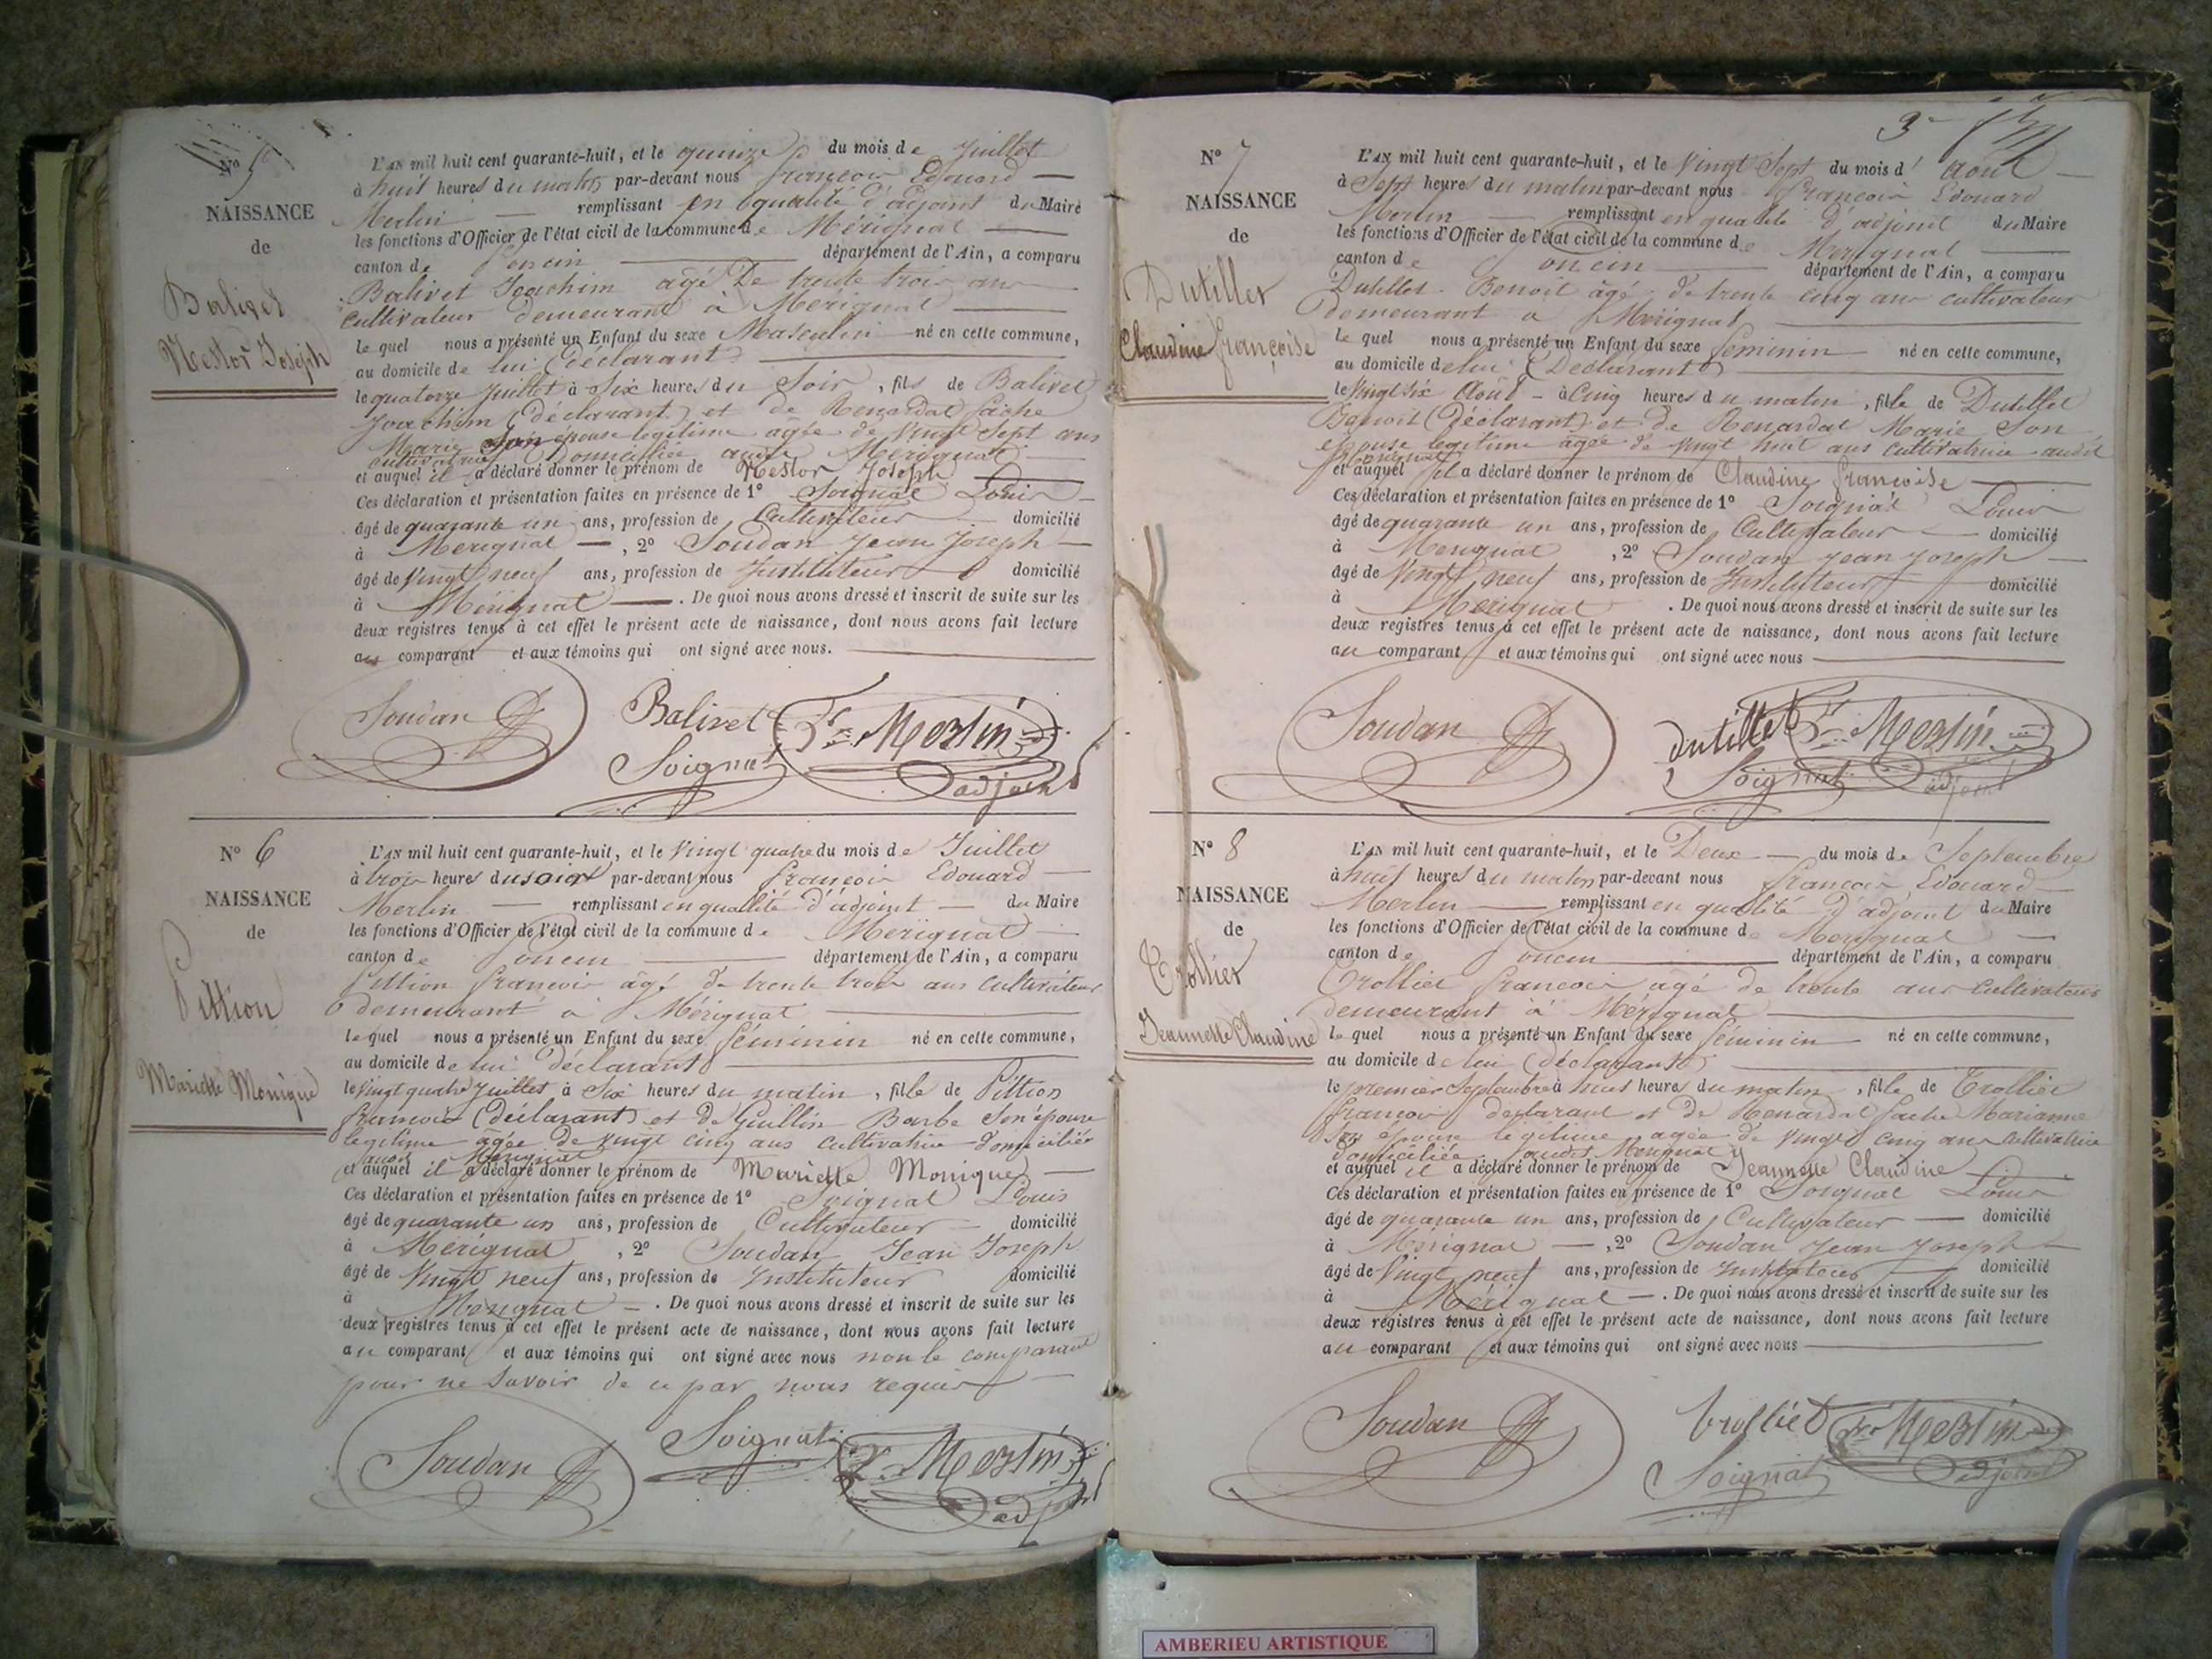 N° 5
NAISSANCE
de
Balivet
Nestor Joseph
L'AN mil huit cent quarante-huit, et le quinze du mois de Juillet
à huit heures du matin par-devant nous françois Edouard
Merlin remplissant en qualité d'adjoint du Maire
les fonctions d'Officier de l'état civil de la commune de Mérignat
canton de Poncin département de l'Ain, a comparu
Balivet Joachim agé De trente trois ans
cultivateur demeurant à Mérignat
le quel nous a présenté un Enfant du sexe Masculin né en cette commune,
au domicile de lui (déclarant)
le quatorze Juillet à Six heures du Soir, fils de Balivet
Joachim (déclarant) et de Renardat fâche
Marie son épouse légitime agée de vingt Sept ans
cultivatrice domiciliée audit Mérignat
et auquel il a déclaré donner le prénom de Nestor Joseph
Ces déclaration et présentation faites en présence de 1° Soignat Louis
âgé de quarante un ans, profession de Cultivateur domicilié
à Mérignat, 2° Soudan Jean Joseph
âgé de Vingt neuf ans, profession de Instituteur domicilié
à Mérignat. De quoi nous avons dressé et inscrit de suite sur les
deux registres tenus à cet effet le présent acte de naissance, dont nous avons fait lecture
au comparant et aux témoins qui ont signé avec nous.
Soudan Balivet Fs Merlin
Soignat adjoint
N° 6
NAISSANCE
de
Pittion
Mariette Monique
L'AN mil huit cent quarante-huit, et le Vingt quatre du mois de Juillet
à trois heures du soir par-devant nous françois Edouard
Merlin remplissant en qualité d'adjoint du Maire
les fonctions d'Officier de l'état civil de la commune de Mérignat
canton de Poncin département de l'Ain, a comparu
Pittion françois âgé de trente trois ans Cultivateur
demeurant à Mérignat
le quel nous a présenté un Enfant du sexe féminin né en cette commune,
au domicile de lui déclarant
le Vingt quatre Juillet à Six heures du matin, fille de Pittion
françois (déclarant) et de Guillin Barbe Son épouse
légitime agée de vingt cinq ans cultivatrice domiciliée
audit Mérignat
et auquel il a déclaré donner le prénom de Mariette Monique
Ces déclaration et présentation faites en présence de 1° Soignat Louis
âgé de quarante un ans, profession de Cultivateur domicilié
à Mérignat, 2° Soudan Jean Joseph
âgé de Vingt neuf ans, profession de Instituteur domicilié
à Mérignat. De quoi nous avons dressé et inscrit de suite sur les
deux registres tenus à cet effet le présent acte de naissance, dont nous avons fait lecture
au comparant et aux témoins qui ont signé avec nous non le comparant
pour ne Savoir de ce par nous requis
Soudan Soignat Fs Merlin
adjoint
3
N° 7
NAISSANCE
de
Dutillet
Claudine françoise
L'AN mil huit cent quarante-huit, et le Vingt Sept du mois d' Aout
à Sept heures du matin par-devant nous françois Edouard
Merlin remplissant en qualité d'adjoint du Maire
les fonctions d'Officier de l'état civil de la commune de Mérignat
canton de Poncin département de l'Ain, a comparu
Dutillet Benoit âgé de trente cinq ans cultivateur
demeurant à Mérignat
le quel nous a présenté un Enfant du sexe féminin né en cette commune,
au domicile de lui (Déclarant)
le Vingt Six Août à Cinq heures du matin, fille de Dutillet
Benoit (Déclarant) et de Renardat Marie Son
épouse légitime agée de vingt huit ans cultivatrice audit
Mérignat
et auquel il a déclaré donner le prénom de Claudine françoise
Ces déclaration et présentation faites en présence de 1° Soignat Louis
âgé de quarante un ans, profession de Cultivateur domicilié
à Mérignat, 2° Soudan Jean Joseph
âgé de Vingt neuf ans, profession de Instituteur domicilié
à Mérignat. De quoi nous avons dressé et inscrit de suite sur les
deux registres tenus à cet effet le présent acte de naissance, dont nous avons fait lecture
au comparant et aux témoins qui ont signé avec nous
Soudan dutillet Fs Merlin
Soignat adjoint
N° 8
NAISSANCE
de
Trollier
Jeannette Claudine
L'AN mil huit cent quarante-huit, et le Deux du mois de Septembre
à huit heures du matin par-devant nous françois Edouard
Merlin remplissant en qualité d'adjoint du Maire
les fonctions d'Officier de l'état civil de la commune de Mérignat
canton de Poncin département de l'Ain, a comparu
Trolliet françois agé de trente ans Cultivateur
demeurant à Mérignat
le quel nous a présenté un Enfant du sexe féminin né en cette commune,
au domicile de lui (déclarant)
le premier Septembre à huit heures du matin, fille de Trolliet
françois déclarant et de Renardat fache Marianne
Son épouse légitime agée de vingt cinq ans Cultivatrice
domiciliée audit Mérignat
et auquel il a déclaré donner le prénom de Jeannette Claudine
Ces déclaration et présentation faites en présence de 1° Soignat Louis
âgé de quarante un ans, profession de Cultivateur domicilié
à Mérignat, 2° Soudan Jean Joseph
âgé de Vingt neuf ans, profession de Instituteur domicilié
à Mérignat. De quoi nous avons dressé et inscrit de suite sur les
deux registres tenus à cet effet le présent acte de naissance, dont nous avons fait lecture
au comparant et aux témoins qui ont signé avec nous
Soudan trolliet Fs Merlin
Soignat adjoint
AMBERIEU ARTISTIQUE